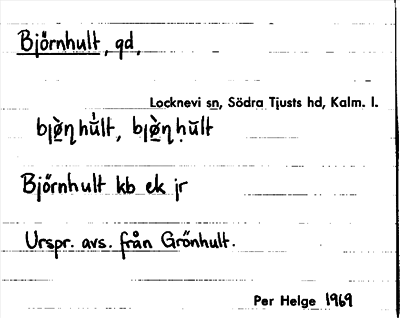 Björnhult, gd,
Locknevi sn, Södra Tjusts hd, Kalm. l.
Björnhult kb ek jr
Urspr. avs. från Grönhult.
Per Helge 1969